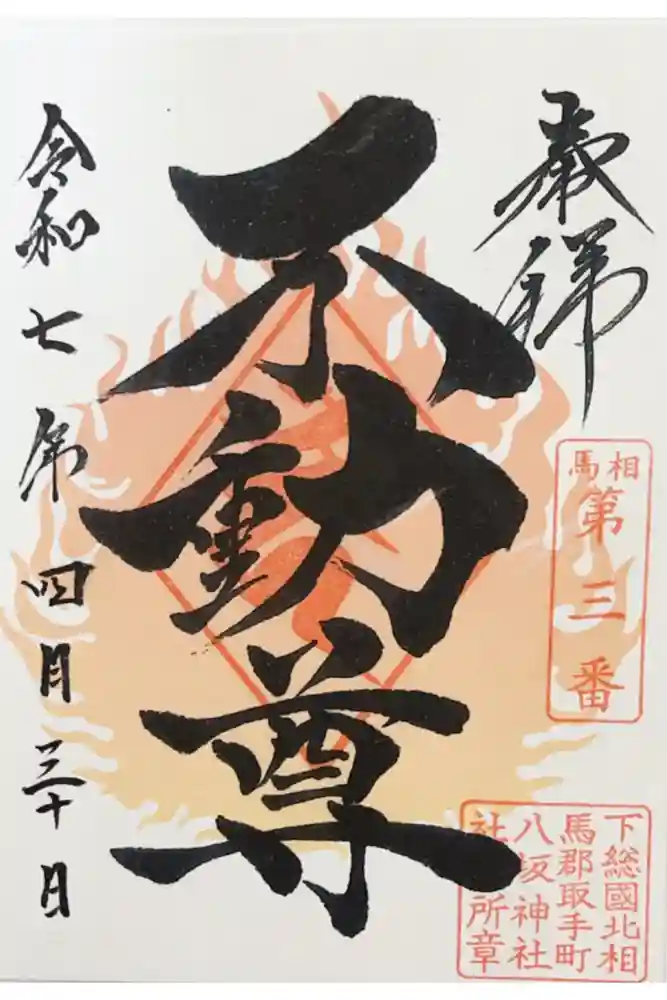 奉拝
相馬
第三番
下総國北相
馬郡取手町
八坂神社
社所章
不動尊
令和七年四月三十日